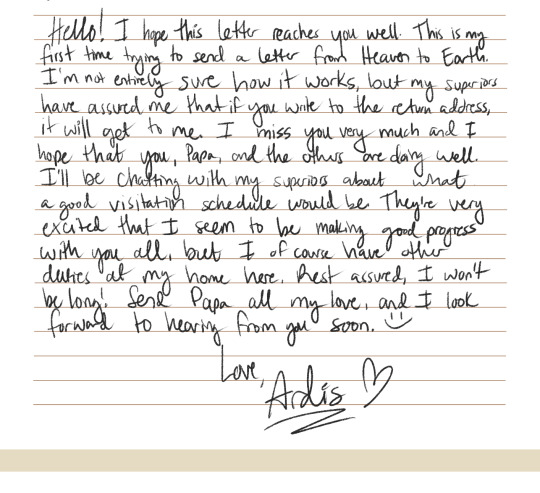 Hello! I hope this letter reaches you well. This is my
first time trying to send a letter from Heaven to Earth.
I'm not entirely sure how it works, but my superiors
have assured me that if you write to the return address,
it will get to me. I miss you very much and I
hope that you, Papa, and the others are doing well.
I'll be chatting with my superiors about what
a good visitation schedule would be. They're very
excited that I seem to be making good progress
with you all, but I of course have other
duties at my home here. Rest assured, I won't
be long! Send Papa all my love, and I look
forward to hearing from you soon.
Love,
Ardis